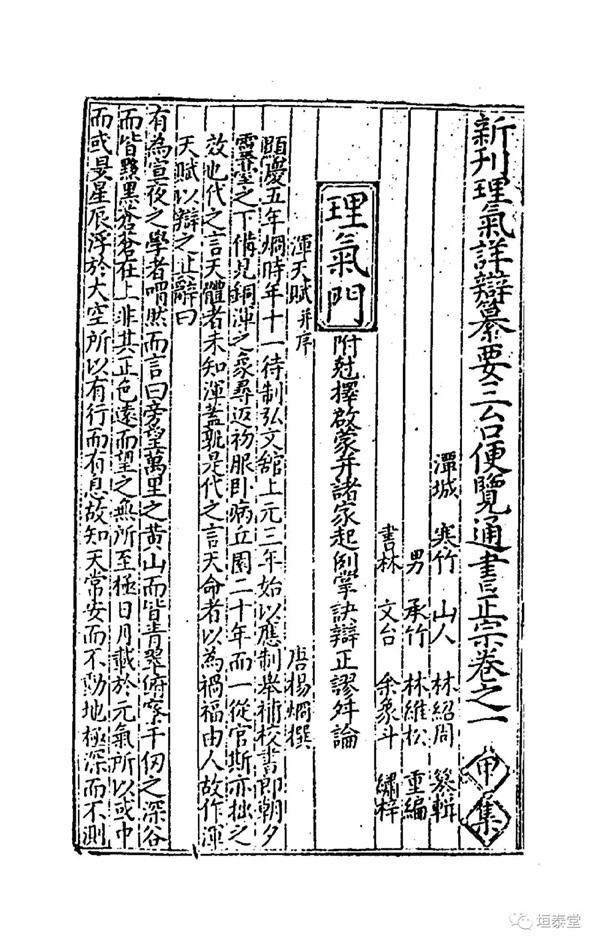 新刊理氣詳辯纂要三台便覽通書正宗卷之一 甲集
潭城 寒竹 山人 林紹周 纂輯
男 承竹 林維松 重編
書林 文台 余象斗 繡梓
理氣門
附尅擇啟蒙并諸家起例掌訣辯正謬舛論
渾天賦并序 唐楊烱撰
顯慶五年烱時年十一待制弘文舘上元三年始以應制舉補校書郎朝夕
靈臺之下備見銅渾之象尋返初服卧病丘園二十年而一從官斯亦拙之
效也代之言天體者未知渾蓋孰是代之言天命者以為禍福由人故作渾
天賦以辯之其辭曰
有為宣夜之學者喟然而言曰旁望萬里之黃山而皆青翠俯察千仞之深谷
而皆黝黑蒼蒼在上非其正色遠而望之無所至極日月載於元氣所以或中
而或昃星辰浮於大空所以有行而有息故知天常安而不動地極深而不測
垣泰堂